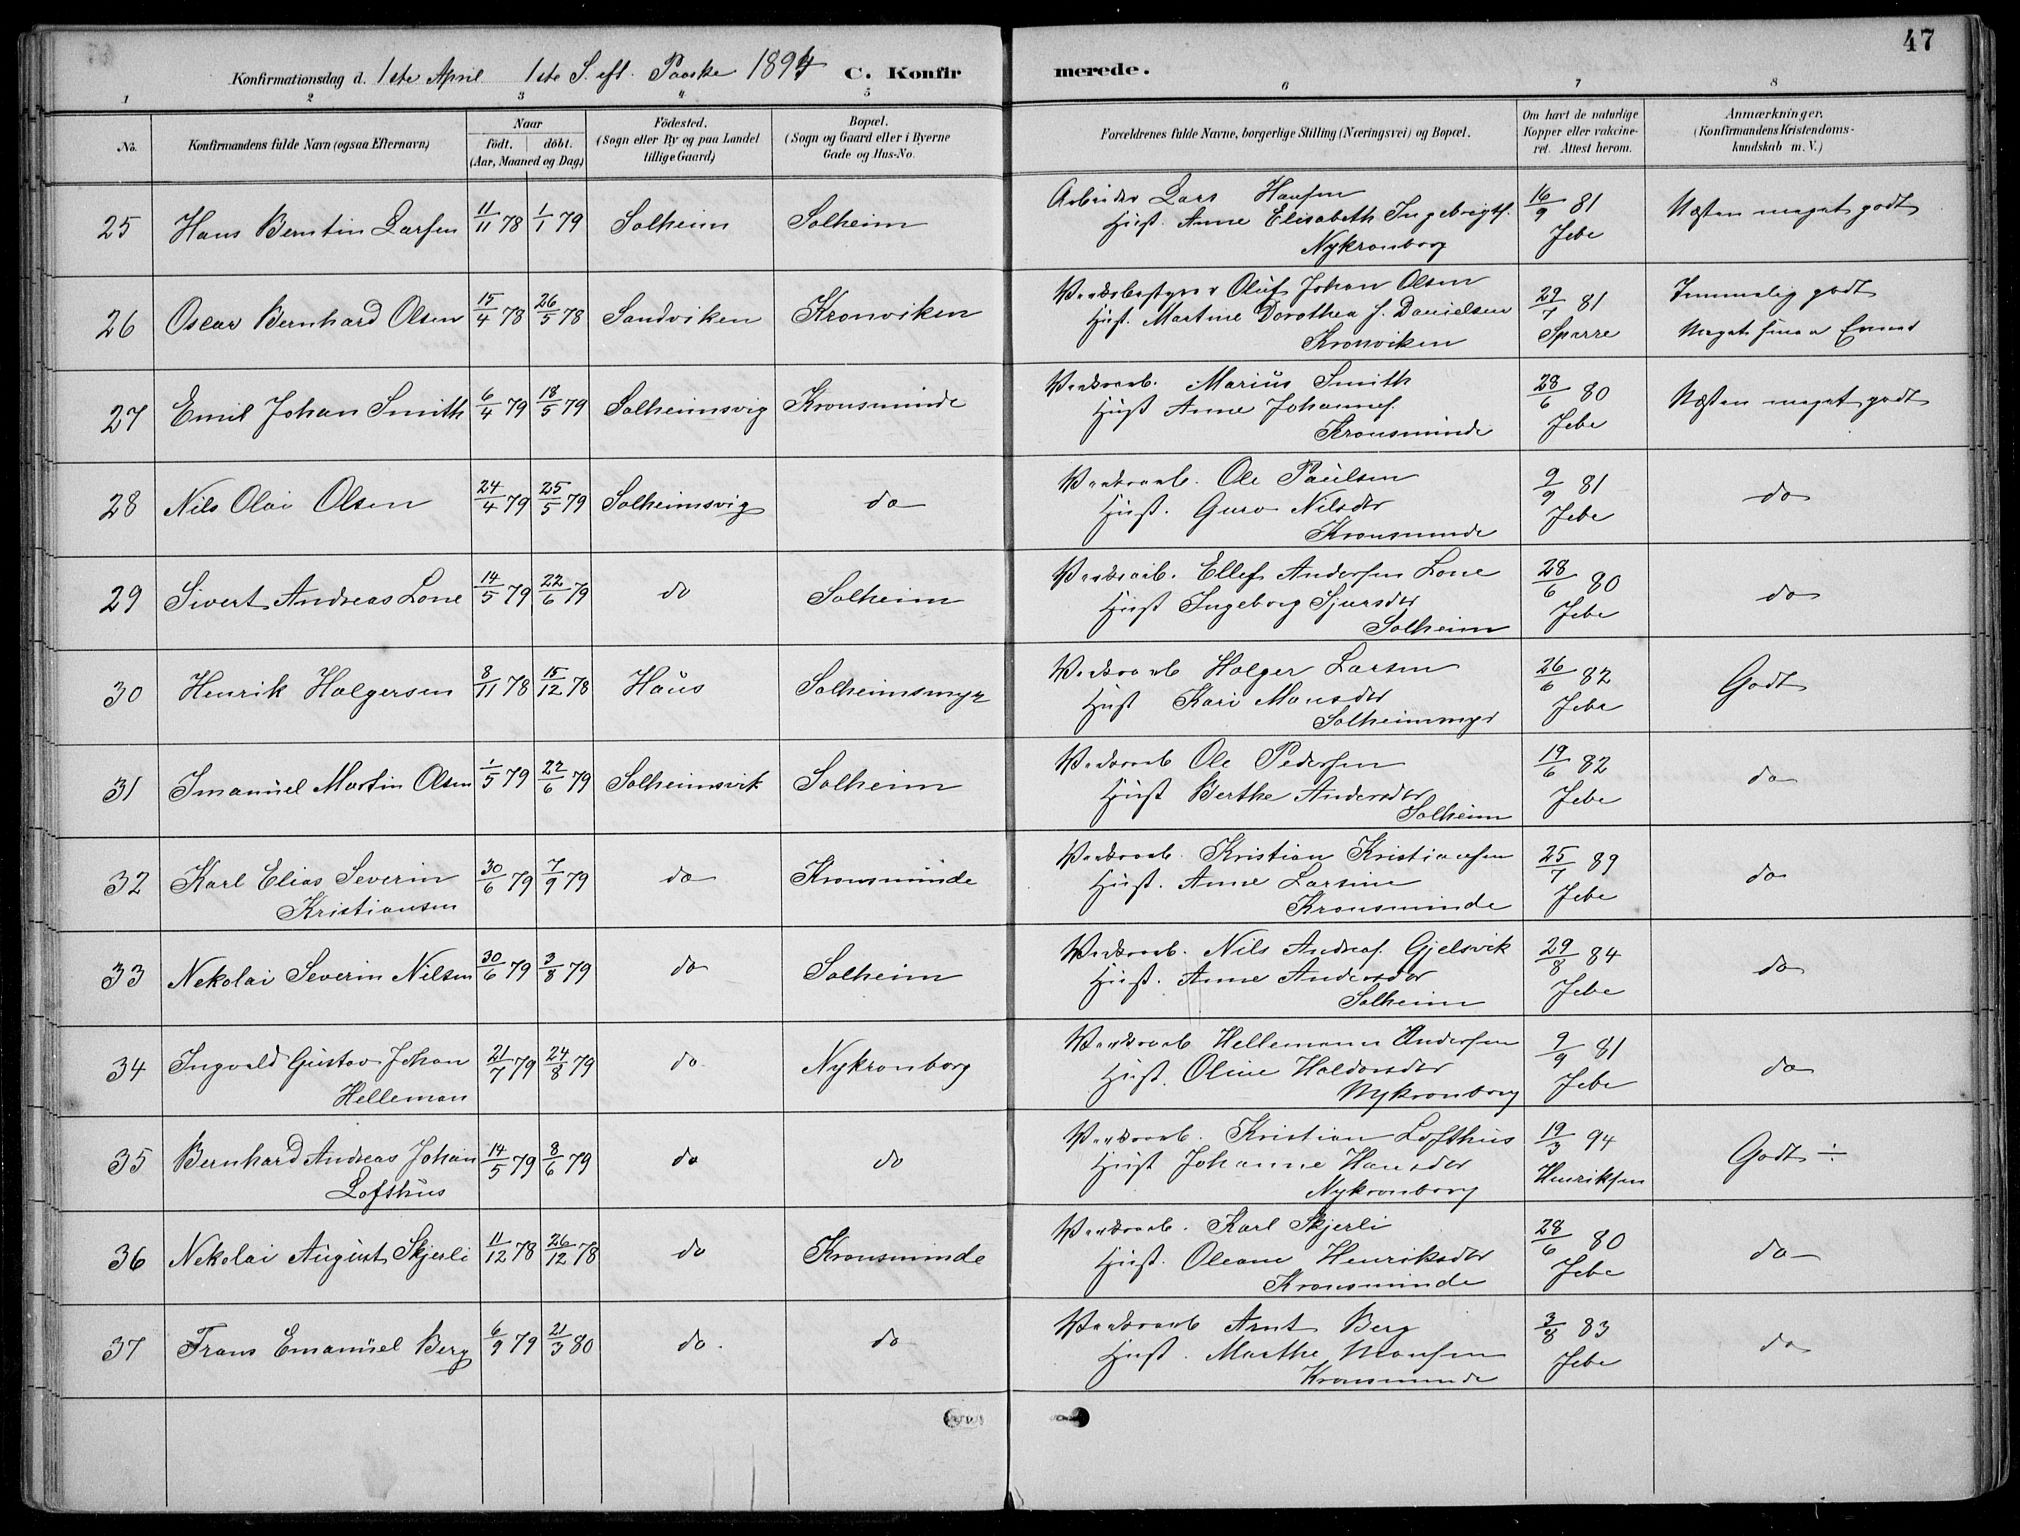 47
Konfirmationsdag d. 1ste April 1ste S. eft. Paaske 1894 C. Konfirmerede.
1 2 3 4 5 6 7 8
No. Konfirmandens fulde Navn (ogsaa Efternavn) Naar født. døbt. (Aar, Maaned og Dag) Fødested. (Sogn eller By og paa Landet tillige Gaard) Bopæl. (Sogn og Gaard eller i Byerne Gade og Hus-No. Forældrenes fulde Navne, borgerlige Stilling (Næringsvei) og Bopæl. Om havt de naturlige Kopper eller vakcineret. Attest herom. Anmærkninger. (Konfirmandens Kristendomskundskab m. V.)
25 Hans Berntin Larsen 11/11 78 1/1 79 Solheim Solheim Arbeider Lars Hansen 16/9 81 Næsten meget godt
Hust. Anne Elisabeth Ingebrigts.
Nykronborg Jebe
26 Oscar Bernhard Olsen 15/4 78 26/5 78 Sandviken Kronviken Oluf Johan Olsen 29/7 81 Temmelig godt
Hust. Martine Dorothea J. Danielsen
Kronviken Sparre Meget
27 Emil Johan Smith 6/4 79 18/5 79 Solheimsvig Kronsminde Værksarb. Marius Smith 28/6 80 Næsten meget godt
Hust Anne Johannes.
Kronsminde Jebe
28 Nils Olai Olsen 24/4 79 25/5 79 Solheimsvig do Værksarb. Ole Paulsen 9/9 81 do
Hust. Guro Nilsdtr
Kronsminde Jebe
29 Sivert Andreas Lone 14/5 79 22/6 79 do Solheim Værksarb. Ellef Andersen Lone 28/6 80 do
Hust Ingeborg Sjursdtr
Solheim Jebe
30 Henrik Holgersen 8/11 78 15/12 78 Haus Solheimsmyr Værksarb Holger Larsen 26/6 82 Godt
Hust Kari Monsdtr
Solheimmyr Jebe
31 Imanuel Martin Olsen 1/5 79 22/6 79 Solheimsvik Solheim Værksarb Ole Pedersen 19/6 82 do
Hust Berthe Andersdtr
Solheim Jebe
32 Karl Elias Severin 30/6 79 7/9 79 do Kronsminde Værksarb. Kristian Kristiansen 25/7 89 do
Kristiansen Hust. Anne Larsine
Kronsminde Jebe
33 Nekolai Severin Nilsen 30/6 79 3/8 79 do Solheim Værksarb. Nils Andreas. Gjelsvik 29/8 84 do
Hust. Anne Andersdtr
Solheim Jebe
34 Ingvald Gustav Johan 21/7 79 24/8 79 do Nykronborg Værksarb Hellemann Andersen 9/9 81 do
Helleman Hust. Oline Haldorsdtr
Nykronborg Jebe
35 Bernhard Andreas Johan 14/5 79 8/6 79 do do Værksarb. Kristian Lofthus 19/3 94 Godt ÷
Lofthus Hust Johanne Hansdtr
Nykronborg Henriksen
36 Nekolai August Skjerli 11/12 78 26/12 78 do Kronsminde Værksarb. Karl Skjerli 28/6 80 do
Hust. Oleane Henriksdtr
Kronsminde Jebe
37 Frans Emanuel Berg 6/9 79 21/3 80 do do Værksarb Arnt Berg 3/8 83 do
Hust. Marthe Monsen
Kronsminde Jebe